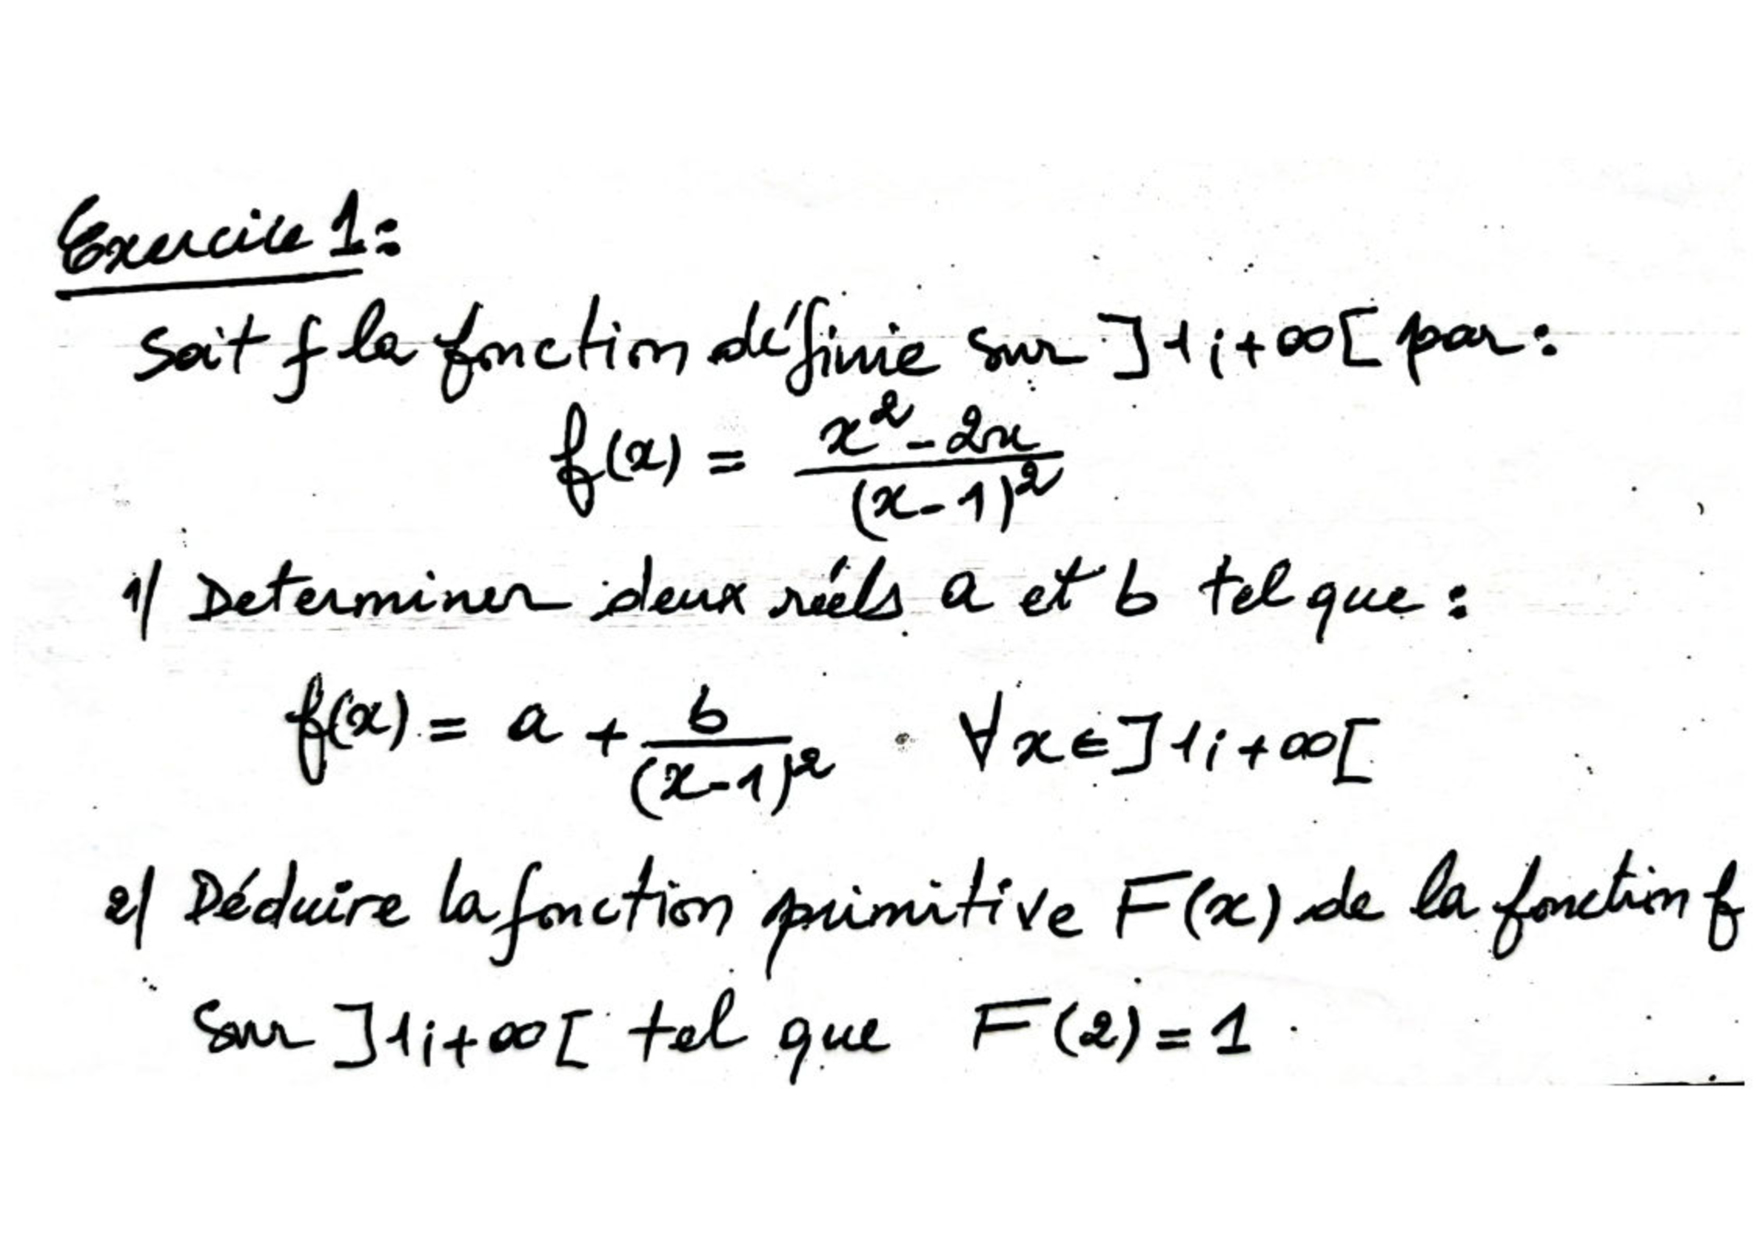 Exercice 1:
Soit f la fonction définie sur ]1;+∞[ par:
f(x) = (x² - 2x) / (x-1)²
1/ Determiner deux réels a et b tel que:
f(x) = a + b/(x-1)² ∀x∈]1;+∞[
2/ Déduire la fonction primitive F(x) de la fonction f
sur ]1;+∞[ tel que F(2)=1